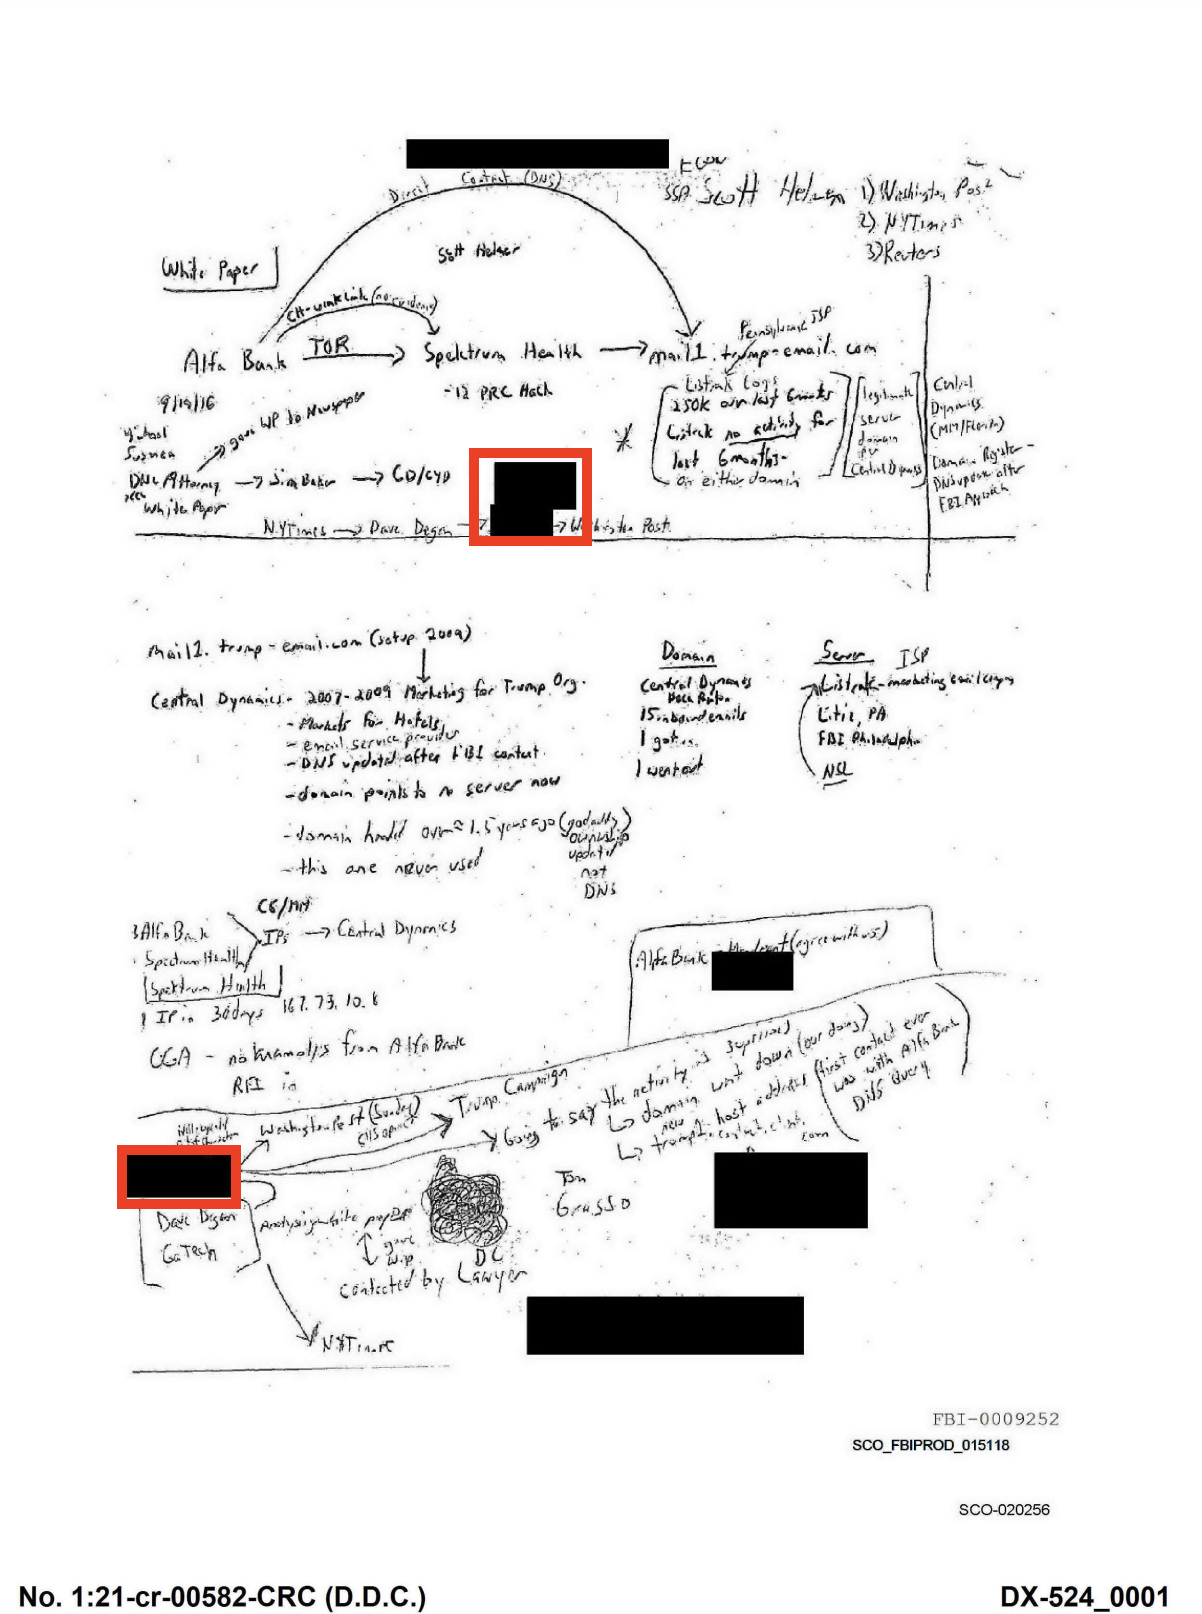 Direct Contact (DNS)
ECOU
SSA Scott Helman
1) Washington Post
2) NYTimes
3) Reuters
Scott Helman
White Paper
(no evidence)
Pennsylvania ISP
Alfa Bank TOR Spektrum Health mail1.trump-email.com
- 12 PRC Hack
9/19/16
gave WP to Newspaper
DNC Attorney Jim Baker CD/CYD
White Paper
NYTimes Dave Degan Washington Post
Listrak Logs
250K over last 6 months
Listrak no activity for
last 6 months -
on either domain
legitimate
server
domain
Central Dynamics
Central
Dynamics
(MM/Florida)
Domain Register -
DNS update after
FBI Approach
mail1.trump-email.com (setup 2009)
Central Dynamics - 2007-2009 Marketing for Trump Org.
- Markets for Hotels
- email service provider
- DNS updated after FBI contact
- domain points to no server now
- domain handed over ≈ 1.5 years ago (godaddy)
ownership
update
not
DNS
- this one never used
Domain
Central Dynamics
15 inbound emails
1 got in
1 went out
Server ISP
Listrak - marketing email
Litiz, PA
FBI Philadelphia
NSL
CG/MM
3 Alfa Bank
IPs Central Dynamics
Spectrum Health
Spektrum Health
1 IP in 30 days 167.73.10.8
OGA - no from Alfa Bank
RFI in
Alfa Bank - Mandiant (agree with us)
Washington Post (Sunday
Trump Campaign
Going to say the activity is
domain went down (our doing)
new host address (first contact ever
was with Alfa Bank
DNS query
Dave Degan
GaTech
analysis white paper
gave
W.P.
contacted by DC Lawyer
Tom
Grasso
NYTimes
FBI-0009252
SCO_FBIPROD_015118
SCO-020256
No. 1:21-cr-00582-CRC (D.D.C.)
DX-524_0001